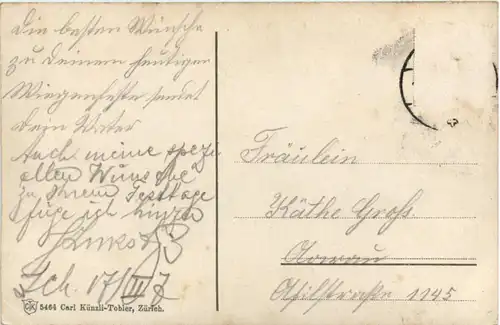 Die besten Wünsche
zu Deinem heutigen
Wiegenfeste sendet
Dein Vater
Auch meine spezi-
ellen Wünsche
zu Ihrem Festtage
füge ich hinzu
Zch. 17/III 7
5464 Carl Künzli-Tobler, Zürich.
Fräulein
Käthe Groß
Aarau
1145